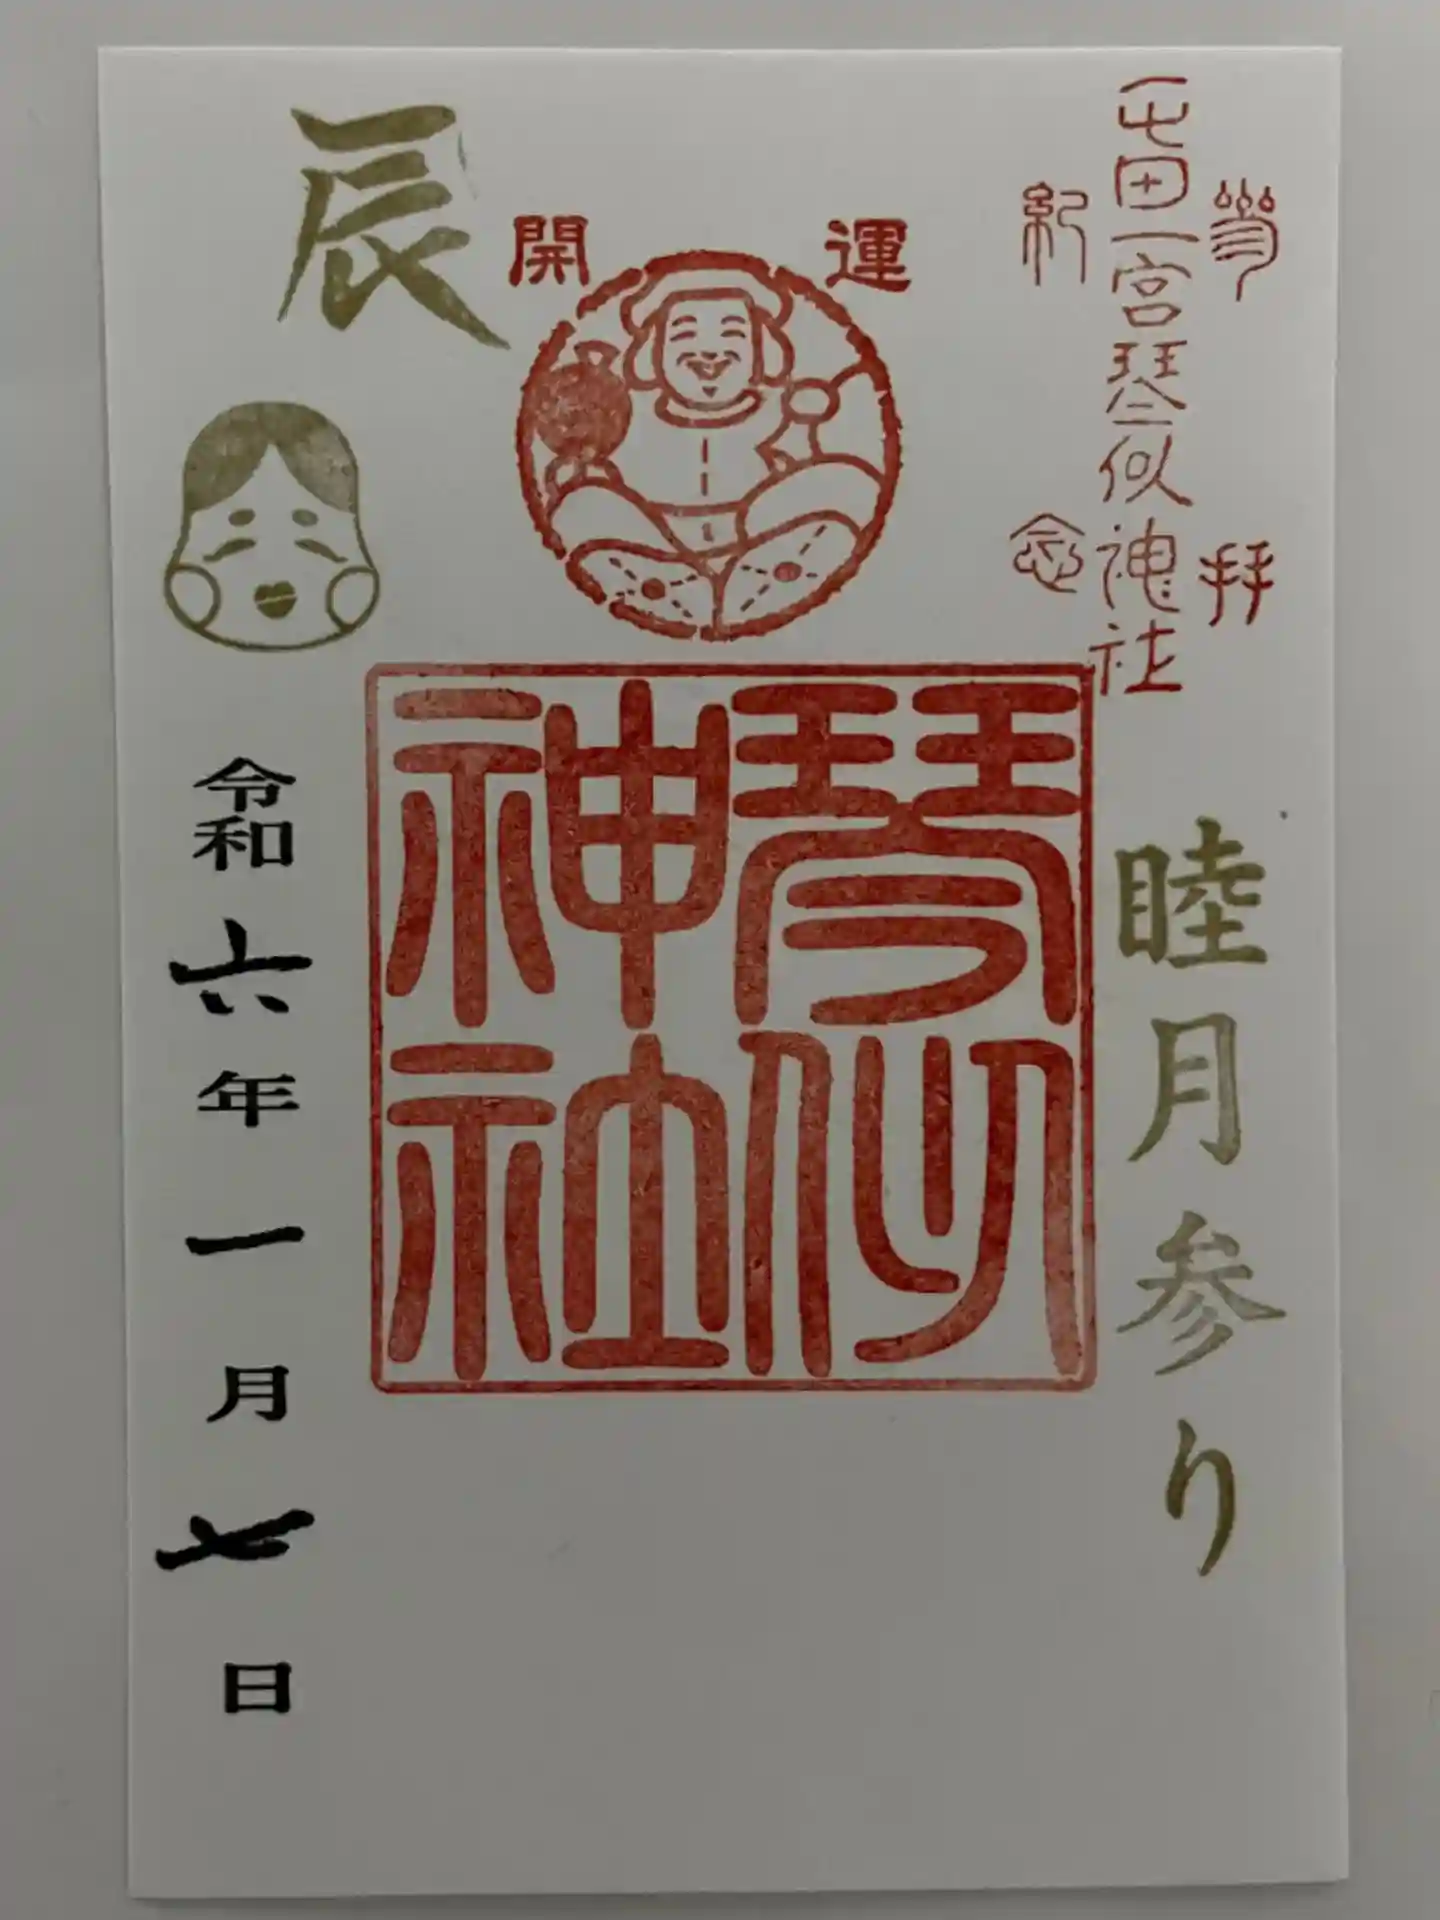 参拝
屯田一宮琴似神社
紀念
睦月参り
開運
琴似
神社
辰
令和六年一月七日